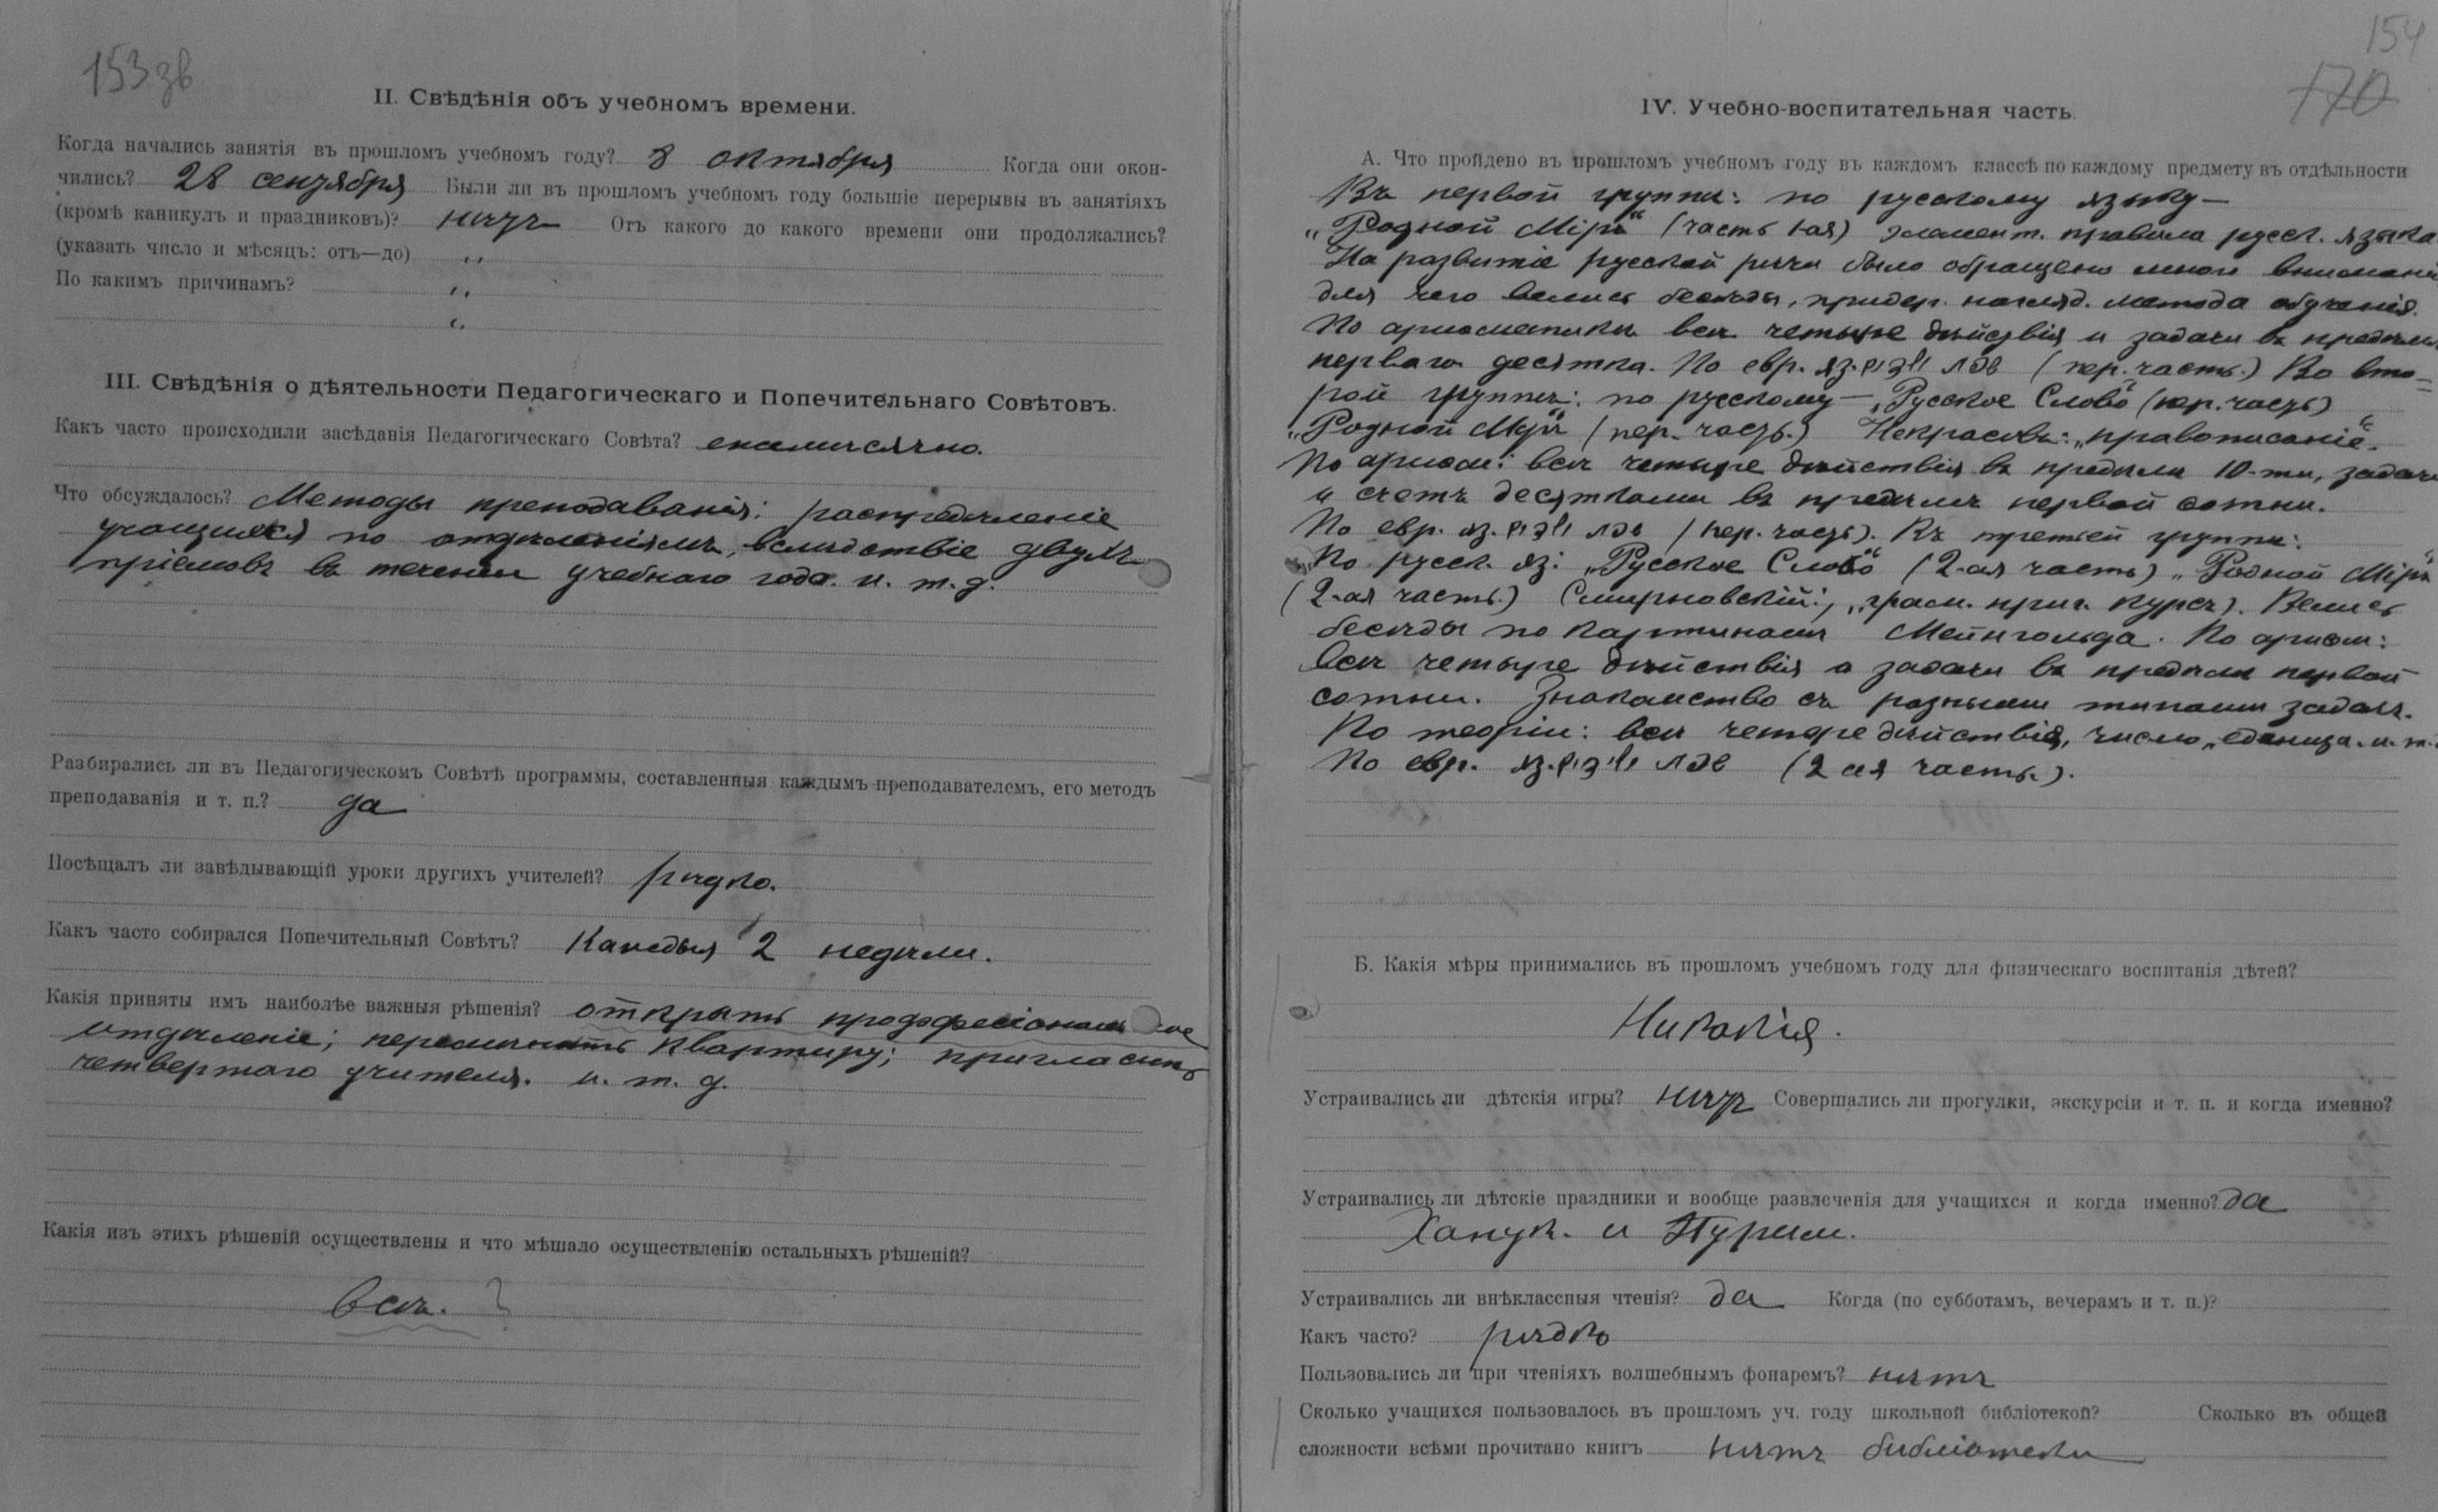 153 зв
II. Свѣдѣнія объ учебномъ времени.
Когда начались занятія въ прошломъ учебномъ году? 8 октября Когда они окон-
чились? 28 сентября Были ли въ прошломъ учебномъ году большіе перерывы въ занятіяхъ
(кромѣ каникулъ и праздниковъ)? нѣтъ Отъ какого до какого времени они продолжались?
(указать число и мѣсяцъ: отъ—до) „
По какимъ причинамъ? „
„
III. Свѣдѣнія о дѣятельности Педагогическаго и Попечительнаго Совѣтовъ.
Какъ часто происходили засѣданія Педагогическаго Совѣта? ежемѣсячно.
Что обсуждалось? Методы преподаванія; распредѣленіе
учащихся по отдѣленіямъ, вслѣдствіе двухъ
пріемовъ въ теченіи учебнаго года. и. т. д.
Разбирались ли въ Педагогическомъ Совѣтѣ программы, составленныя каждымъ преподавателемъ, его методъ
преподаванія и т. п.? да
Посѣщалъ ли завѣдывающій уроки другихъ учителей? рѣдко.
Какъ часто собирался Попечительный Совѣтъ? Каждыя 2 недѣли.
Какія приняты имъ наиболѣе важныя рѣшенія? открыть
отдѣленіе; перемѣнить квартиру; пригласить
четвертаго учителя. и. т. д.
Какія изъ этихъ рѣшеній осуществлены и что мѣшало осуществленію остальныхъ рѣшеній?
всѣ. ?
154
170
IV. Учебно-воспитательная часть.
А. Что пройдено въ прошломъ учебномъ году въ каждомъ классѣ по каждому предмету въ отдѣльности
Въ первой группѣ: по русскому языку —
„Родной Міръ“ (часть 1ая) элемент. правила русск. языка
На развитіе русской рѣчи было обращено много вниманія
для чего велись бесѣды, придер. нагляд. метода обученія.
По ариѳметикѣ всѣ четыре дѣйствія и задачи въ предѣлѣ
перваго десятка. По евр. яз. (пер. часть.) Во вто-
рой группѣ: по русскому — „Русское Слово“ (пер. часть)
„Родной Міръ“ (пер. часть.) Некрасовъ: „правописаніе“.
По ариѳм: всѣ четыре дѣйствія въ предѣлѣ 10-ти, задачи
и счетъ десятками въ предѣлѣ первой сотни.
По евр. яз. (пер. часть). Въ третьей группѣ:
По русск. яз: „Русское Слово“ (2-ая часть) „Родной Міръ“
(2-ая часть.) Смирновскій: „грам. курсъ). Велись
бесѣды по картинамъ Мейнгольда. По ариѳм:
всѣ четыре дѣйствія и задачи въ предѣлѣ первой
сотни. Знакомство съ разными типами задач.
По теоріи: всѣ четыре дѣйствія, число, единица. и. т.
По евр. яз. (2 ая часть.).
Б. Какія мѣры принимались въ прошломъ учебномъ году для физическаго воспитанія дѣтей?
Никакія.
Устраивались ли дѣтскія игры? нѣтъ Совершались ли прогулки, экскурсіи и т. п. и когда именно?
Устраивались ли дѣтскіе праздники и вообще развлеченія для учащихся и когда именно? да
Ханук. и Пурим.
Устраивались ли внѣклассныя чтенія? да Когда (по субботамъ, вечерамъ и т. п.)?
Какъ часто? рѣдко
Пользовались ли при чтеніяхъ волшебнымъ фонаремъ? нѣтъ
Сколько учащихся пользовалось въ прошломъ уч. году школьной библіотекой? Сколько въ общей
сложности всѣми прочитано книгъ нѣтъ библіотеки